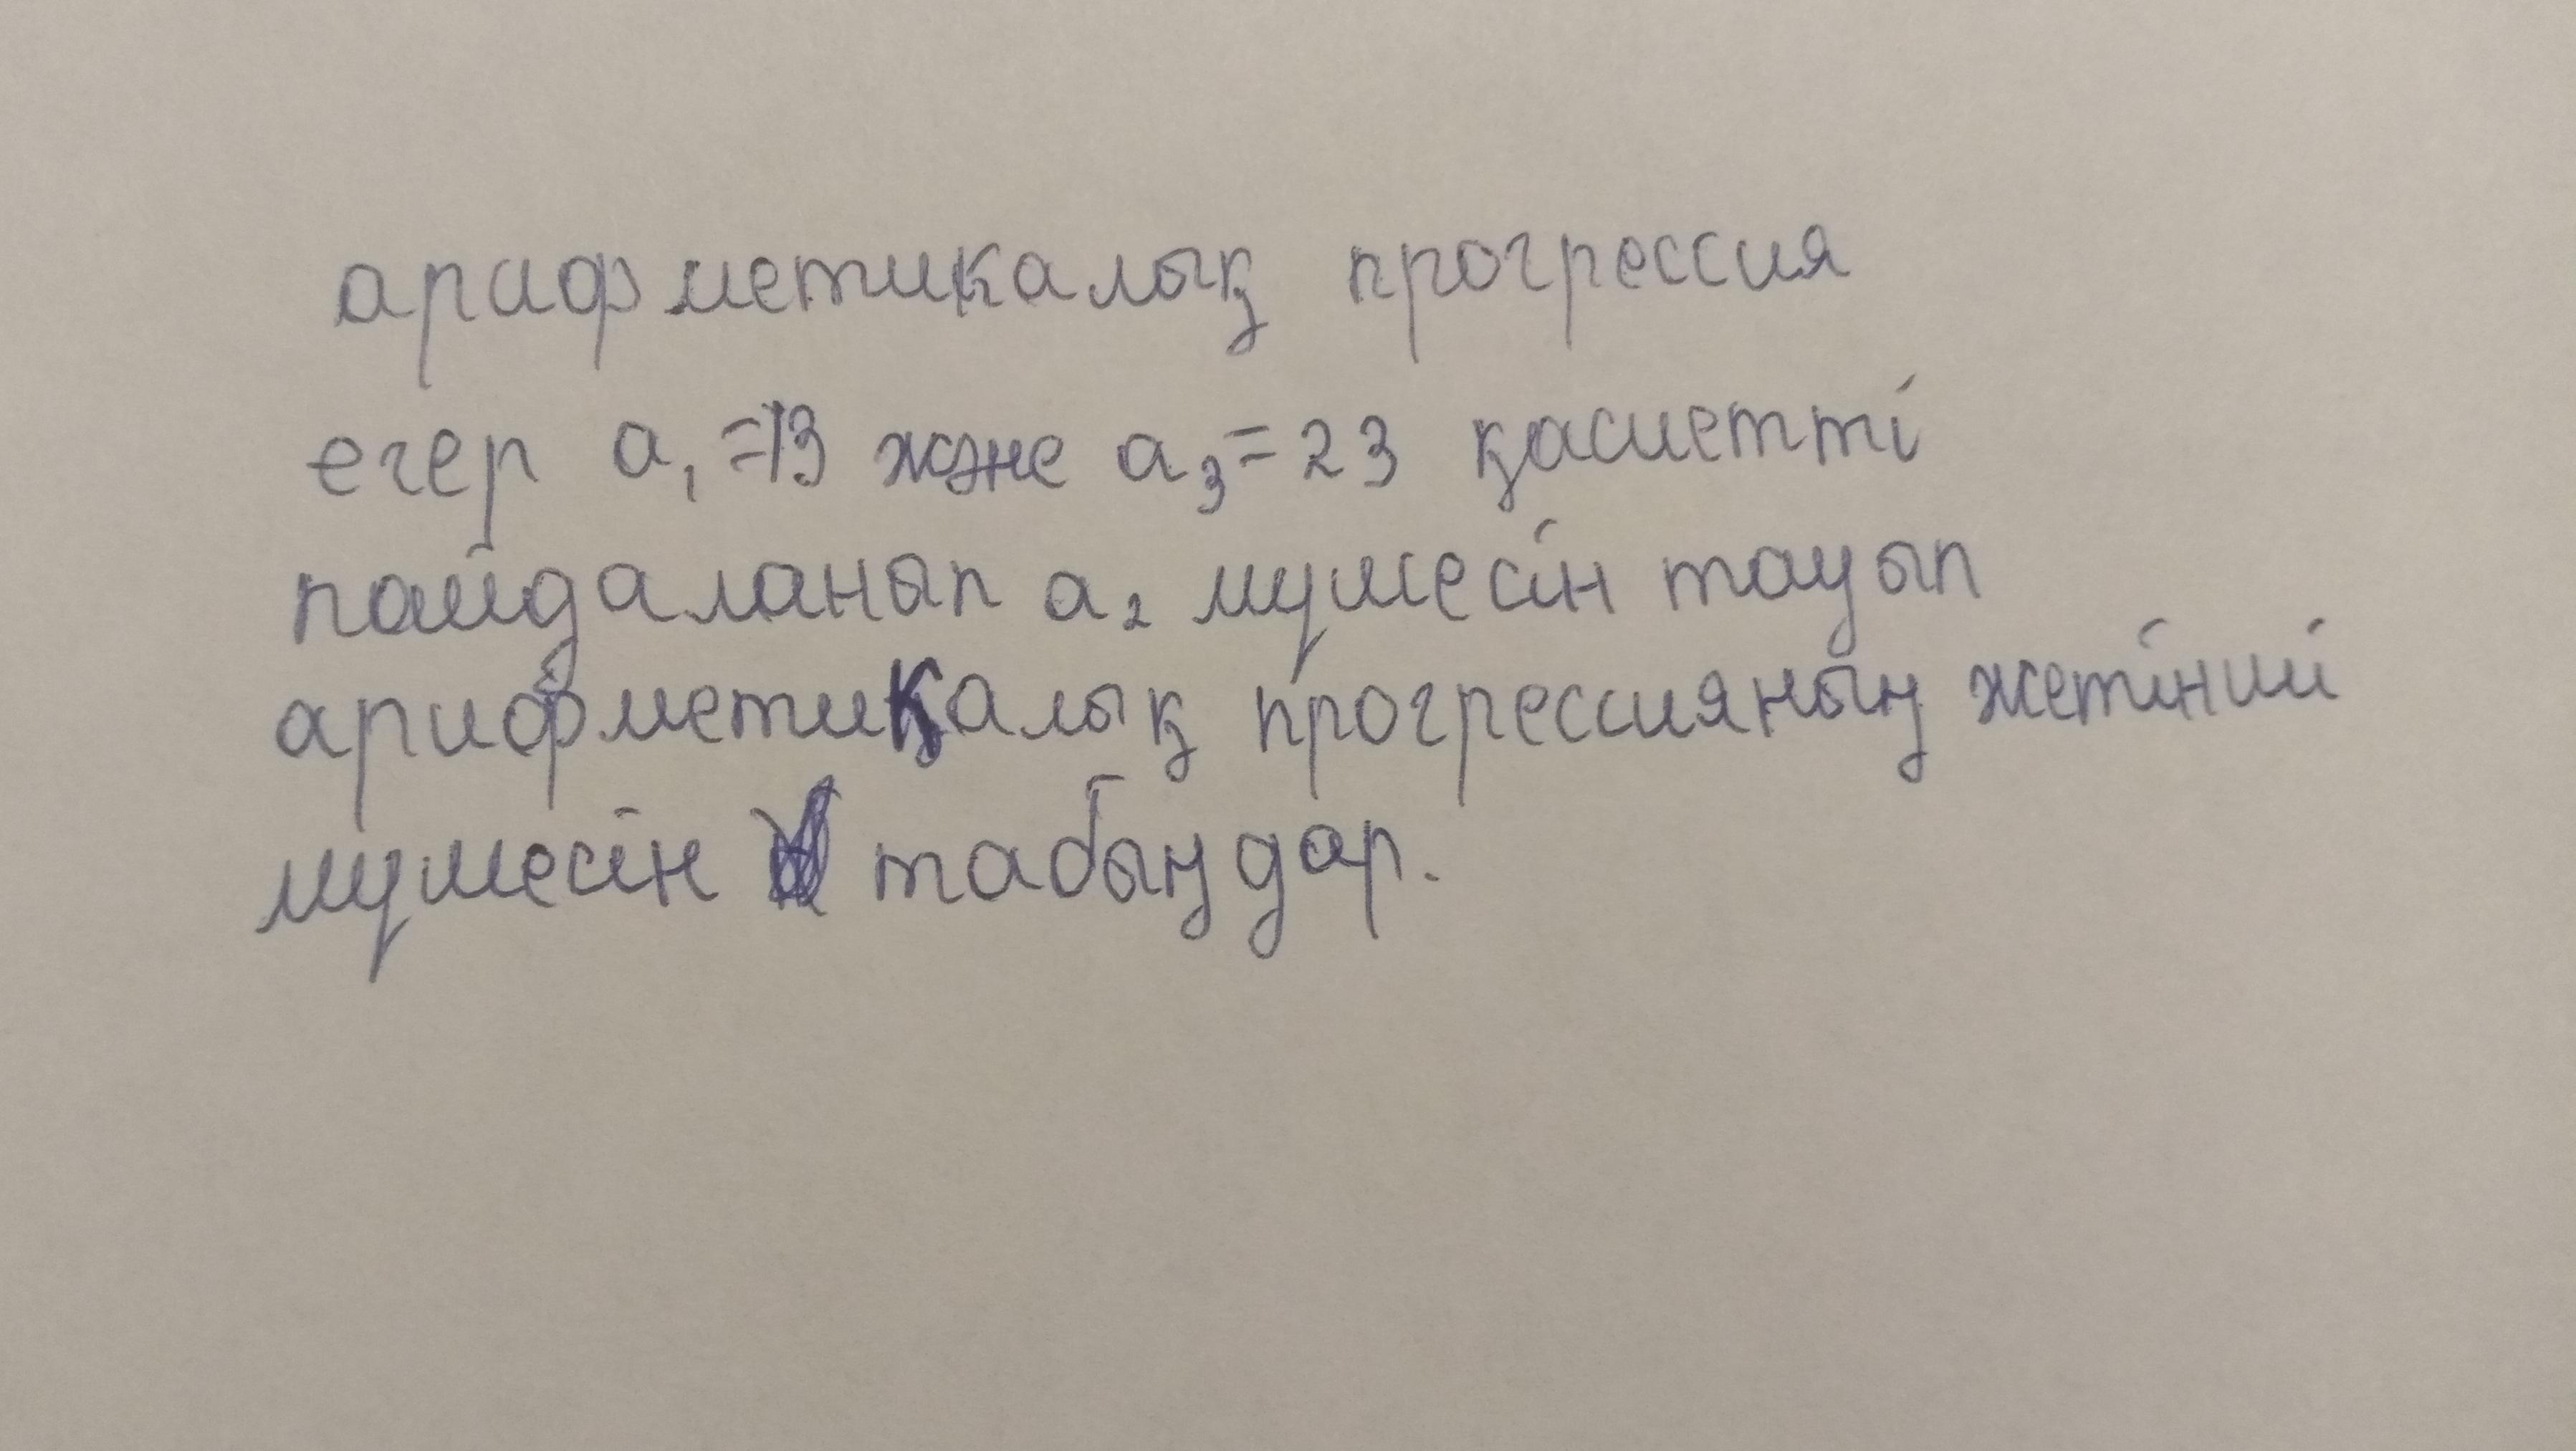 арифметикалық прогрессия
егер a₁=13 және a₃=23 қасиетті
пайдаланып a₂ мүшесін тауып
арифметиқалық прогрессияның жетінші
мүшесін табыңдар.